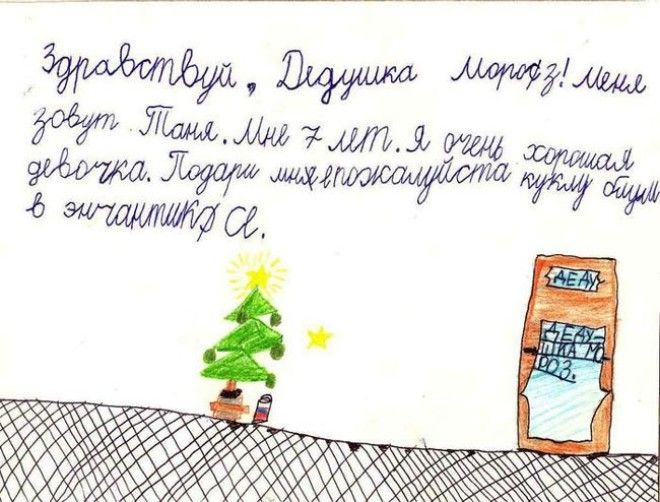 Здравствуй, Дедушка Мороз! Меня
зовут Таня. Мне 7 лет. Я очень хорошая
девочка. Подари мня пожалуйста куклу блум
в энчантикА.
ДЕДУ
ДЕДУ-
ШКА МО
РОЗ.